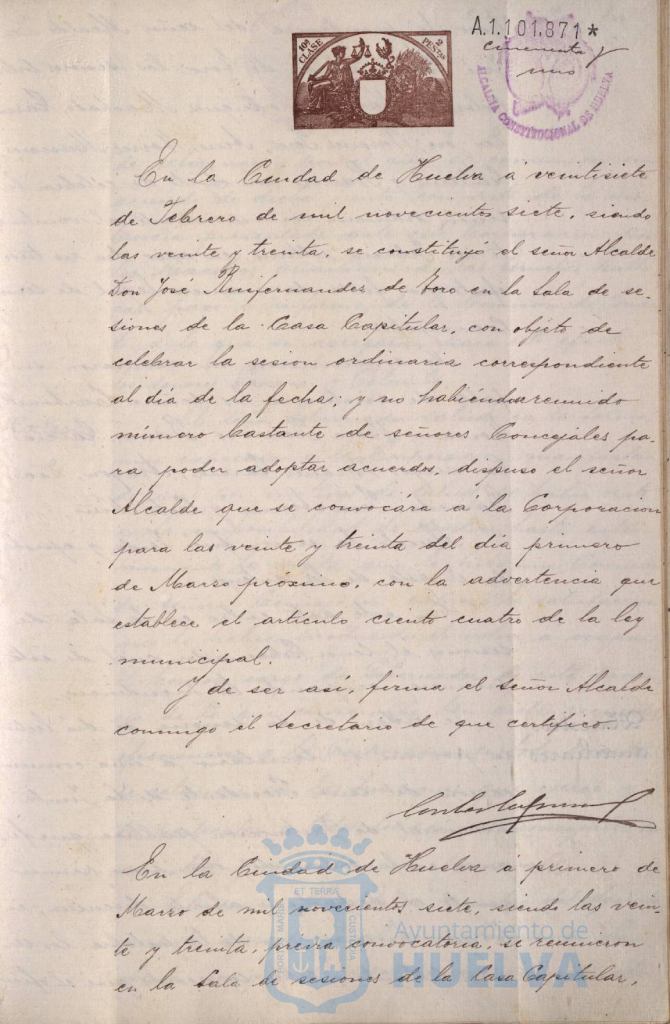 A.1.101.871*
10ª CLASE
2 PESETAS
cincuenta y
uno
ALCALDIA CONSTITUCIONAL DE HUELVA
En la Ciudad de Huelva á veintisiete
de Febrero de mil novecientos siete, siendo
las veinte y treinta, se constituyó el señor Alcalde
Don José Ruifernandez de Toro en la Sala de se-
siones de la Casa Capitular, con objeto de
celebrar la sesion ordinaria correspondiente
al día de la fecha; y no habiéndose reunido
número bastante de señores Concejales pa-
ra poder adoptar acuerdos, dispuso el señor
Alcalde que se convocára á la Corporacion
para las veinte y treinta del día primero
de Marzo próximo, con la advertencia que
establece el artículo ciento cuatro de la ley
municipal.
Y de ser así, firma el señor Alcalde
conmigo el Secretario de que certifico.
En la Ciudad de Huelva á primero de
Marzo de mil novecientos siete, siendo las vein-
te y treinta, previa convocatoria, se reunieron
en la Sala de sesiones de la Casa Capitular,
PORTUS MARIS ET TERRAE CUSTODIA
Ayuntamiento de
HUELVA